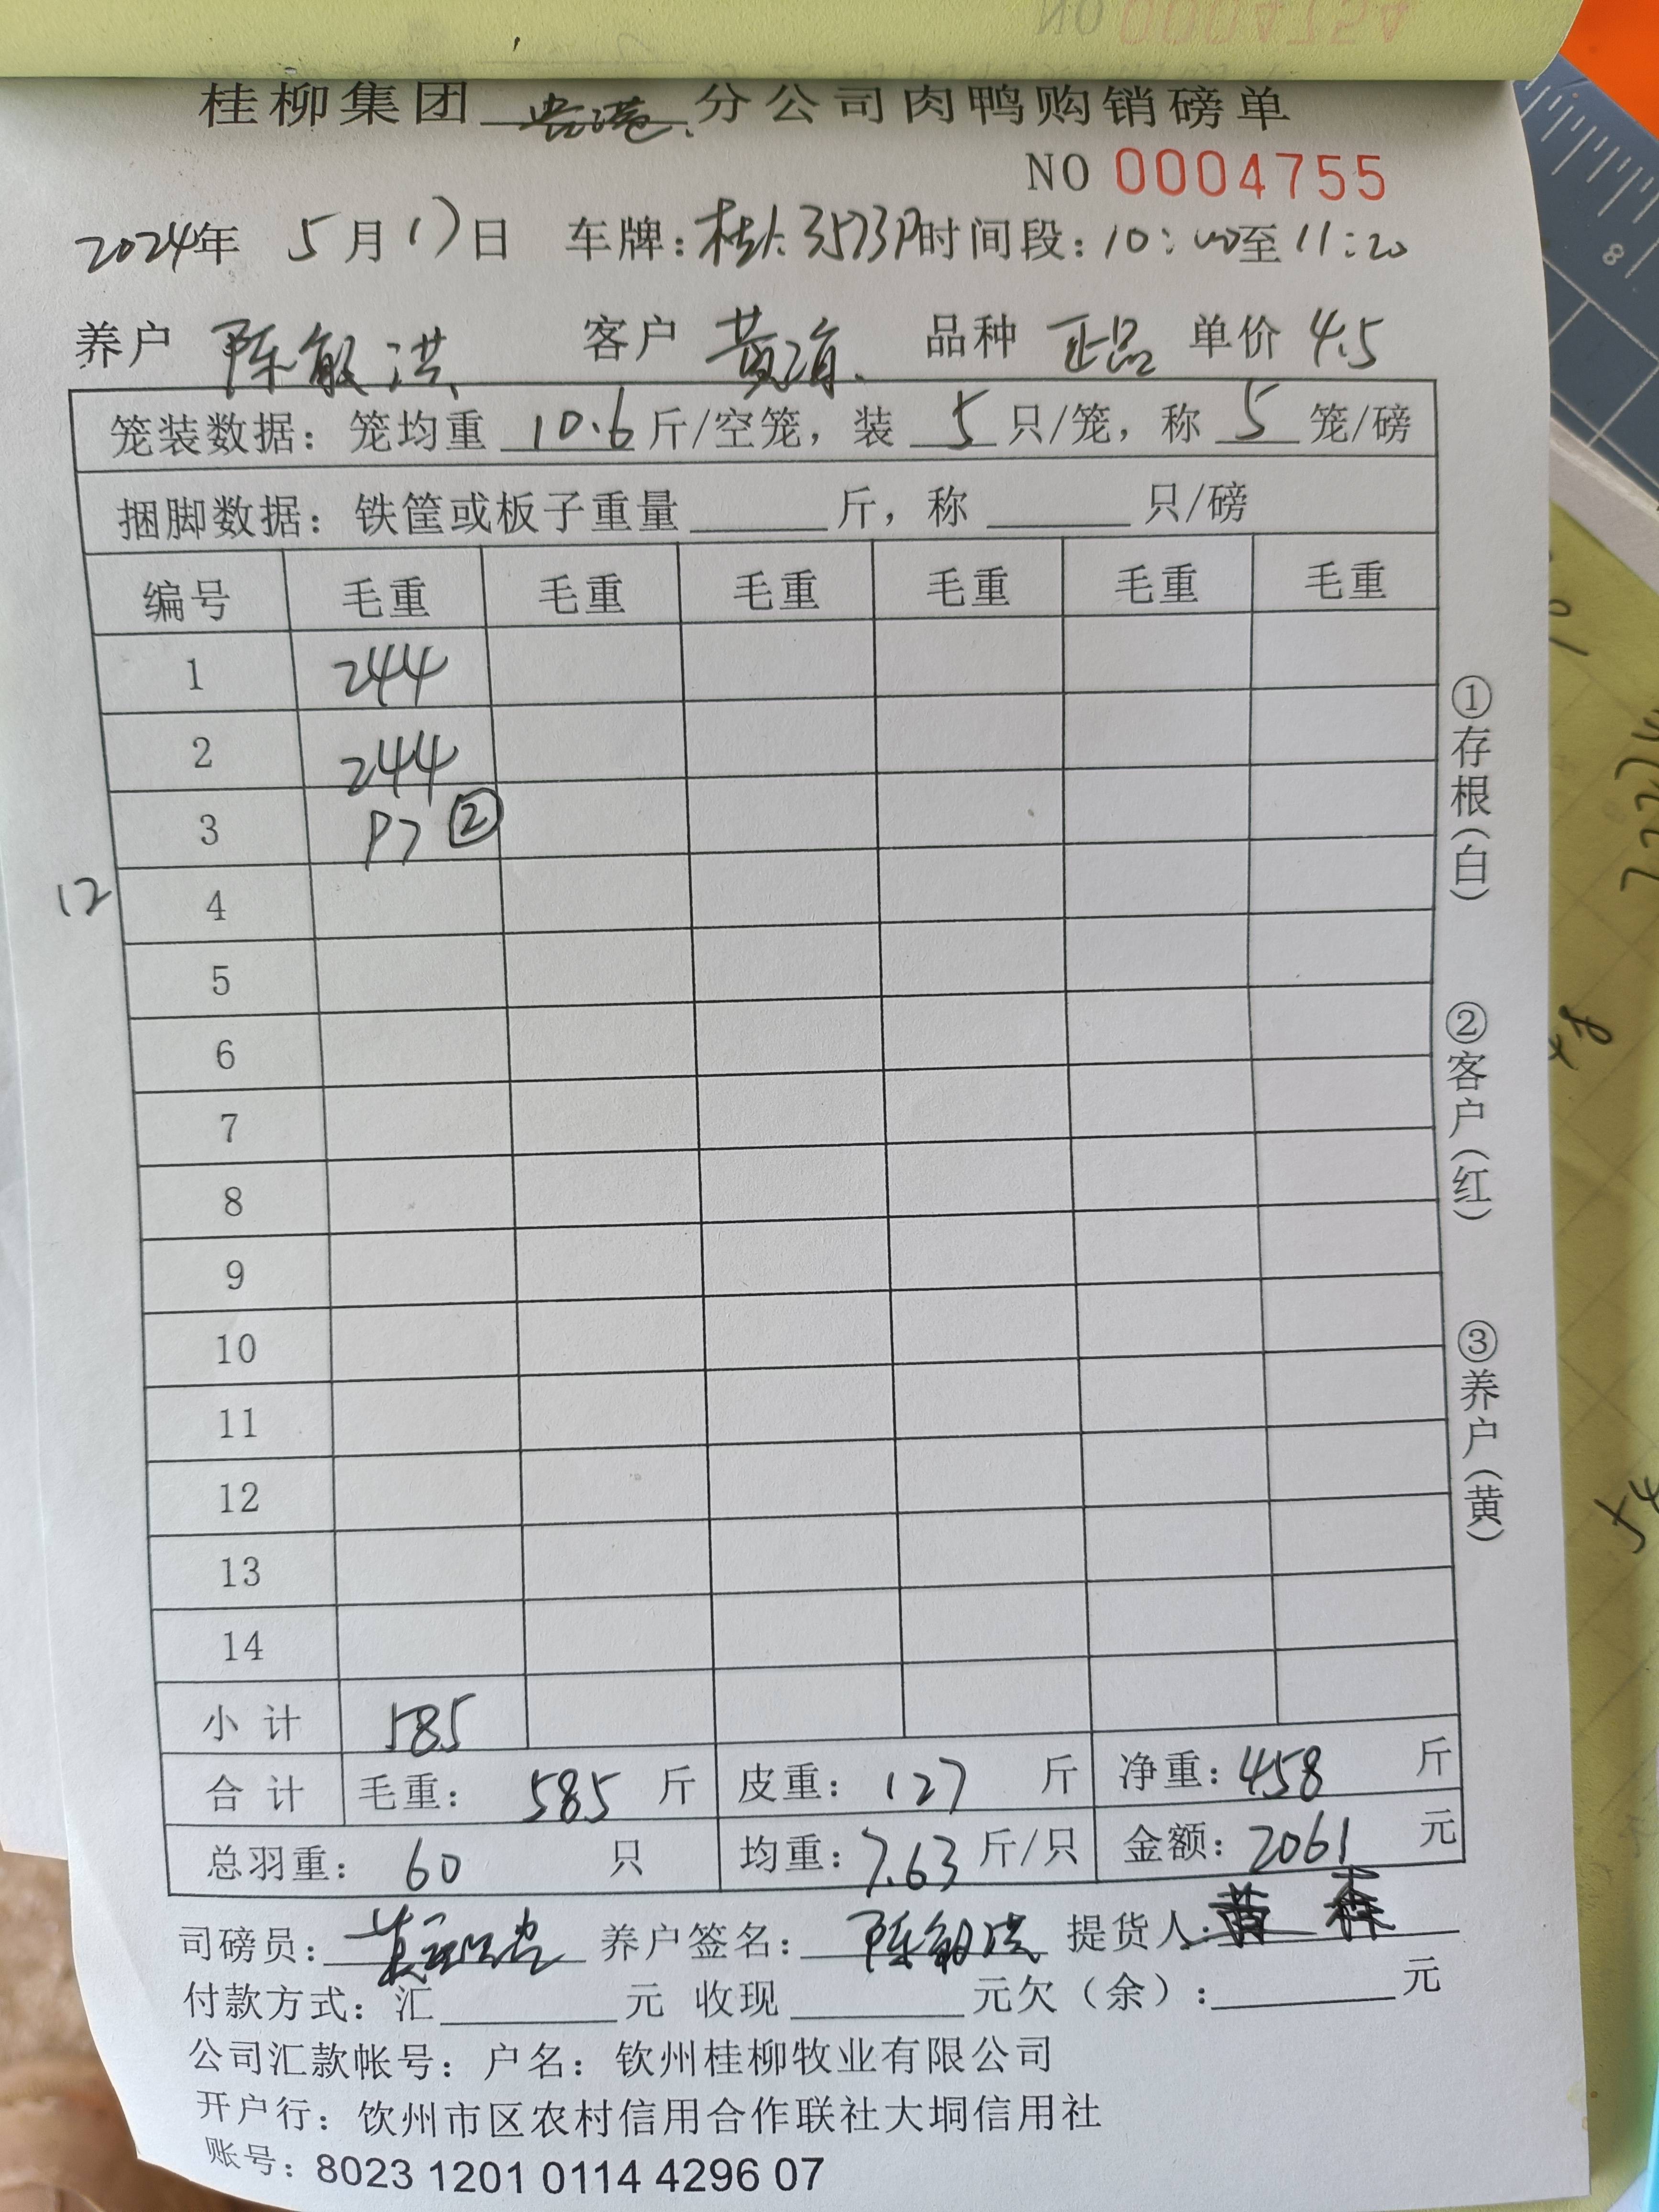 NO 0004754
桂柳集团 贵港 分公司肉鸭购销磅单
NO 0004755
2024年 5月17日 车牌：桂 3573P 时间段：10:00至11:20
养户 陈敏洪 客户 黄 品种 正品 单价 4.5
笼装数据：笼均重 10.6 斤/空笼，装 5 只/笼，称 5 笼/磅
捆脚数据：铁筐或板子重量 斤，称 只/磅
编号 毛重 毛重 毛重 毛重 毛重 毛重
1 244
2 244
3 97 ②
12
4
5
6
7
8
9
10
11
12
13
14
小计 585
合计 毛重：585 斤 皮重：127 斤 净重：458 斤
总羽重：60 只 均重：7.63 斤/只 金额：2061 元
司磅员： 养户签名：陈敏洪 提货人：黄
付款方式：汇 元 收现 元欠（余）： 元
公司汇款帐号：户名：钦州桂柳牧业有限公司
开户行：钦州市区农村信用合作联社大垌信用社
账号：8023 1201 0114 4296 07
①存根（白）
②客户（红）
③养户（黄）